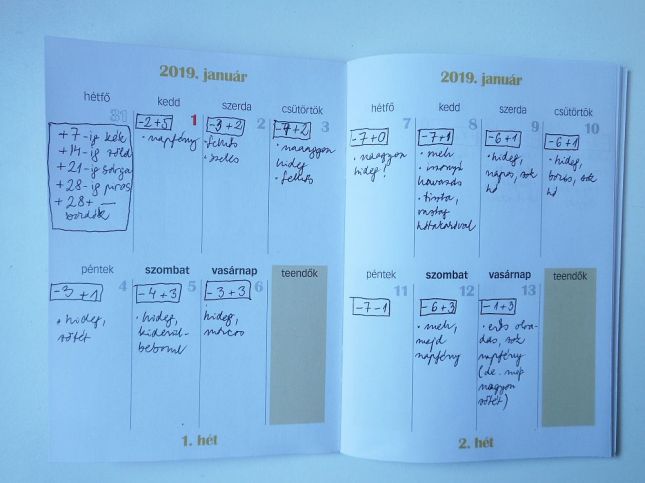 2019. január
hétfő
31
+7-ig kék
+14-ig zöld
+21-ig sárga
+28-ig piros
+28+ —
bordó
kedd
1
-2+5
• napfény
szerda
2
-3+2
• felhős
• szeles
csütörtök
3
-7+2
• naaagyon
hideg
• felhős
péntek
4
-3+1
• hideg,
sötét
szombat
5
-4+3
• hideg,
kiderül-
beborul
vasárnap
6
-3+3
hideg,
teendők
1. hét
2019. január
hétfő
7
-7+0
• naagyon
hideg!
kedd
8
-7+1
• mely
havazás
• tiszta,
vastag
hótakaróval
szerda
9
-6+1
• hideg,
napos, sok
hó
csütörtök
10
-6+1
• hideg,
borús, sok
hó
péntek
11
-7-1
szombat
12
-6+3
majd
napfény
vasárnap
13
-1+3
• erős olva-
dás, sok
napfény
(de. még
nagyon
sötét)
teendők
2. hét